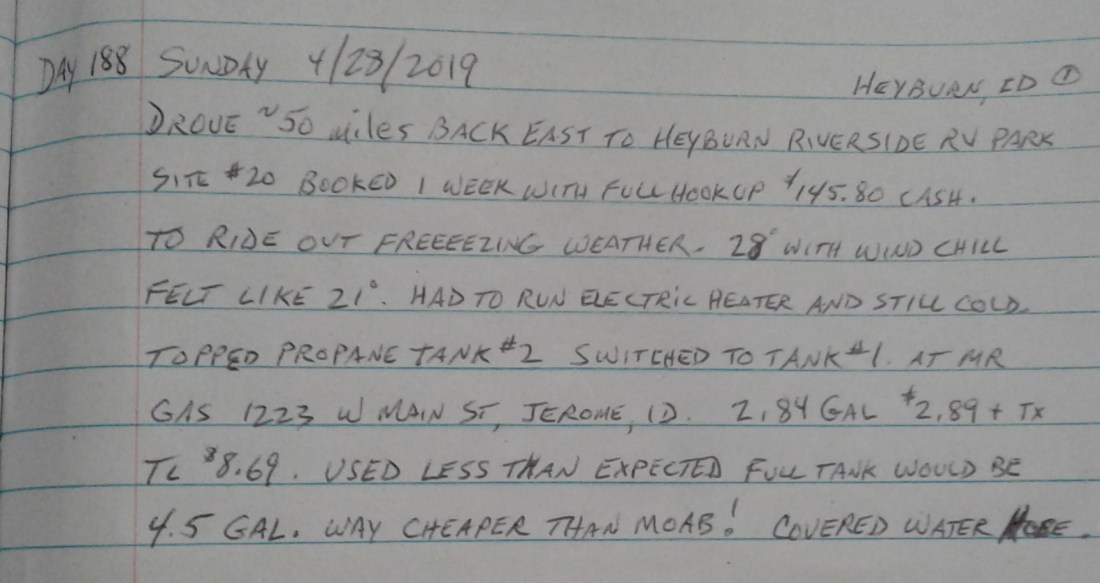 DAY 188 SUNDAY 4/28/2019 HEYBURN, ID ①
DROVE ~50 miles BACK EAST TO HEYBURN RIVERSIDE RV PARK
SITE #20 BOOKED 1 WEEK WITH FULL HOOKUP $145.80 CASH.
TO RIDE OUT FREEEEZING WEATHER. 28° WITH WIND CHILL
FELT LIKE 21°. HAD TO RUN ELECTRIC HEATER AND STILL COLD.
TOPPED PROPANE TANK #2 SWITCHED TO TANK #1. AT MR
GAS 1223 W MAIN ST, JEROME, ID. 2.84 GAL $2.89 + TX
TL $8.69. USED LESS THAN EXPECTED FULL TANK WOULD BE
4.5 GAL. WAY CHEAPER THAN MOAB! COVERED WATER HOSE.